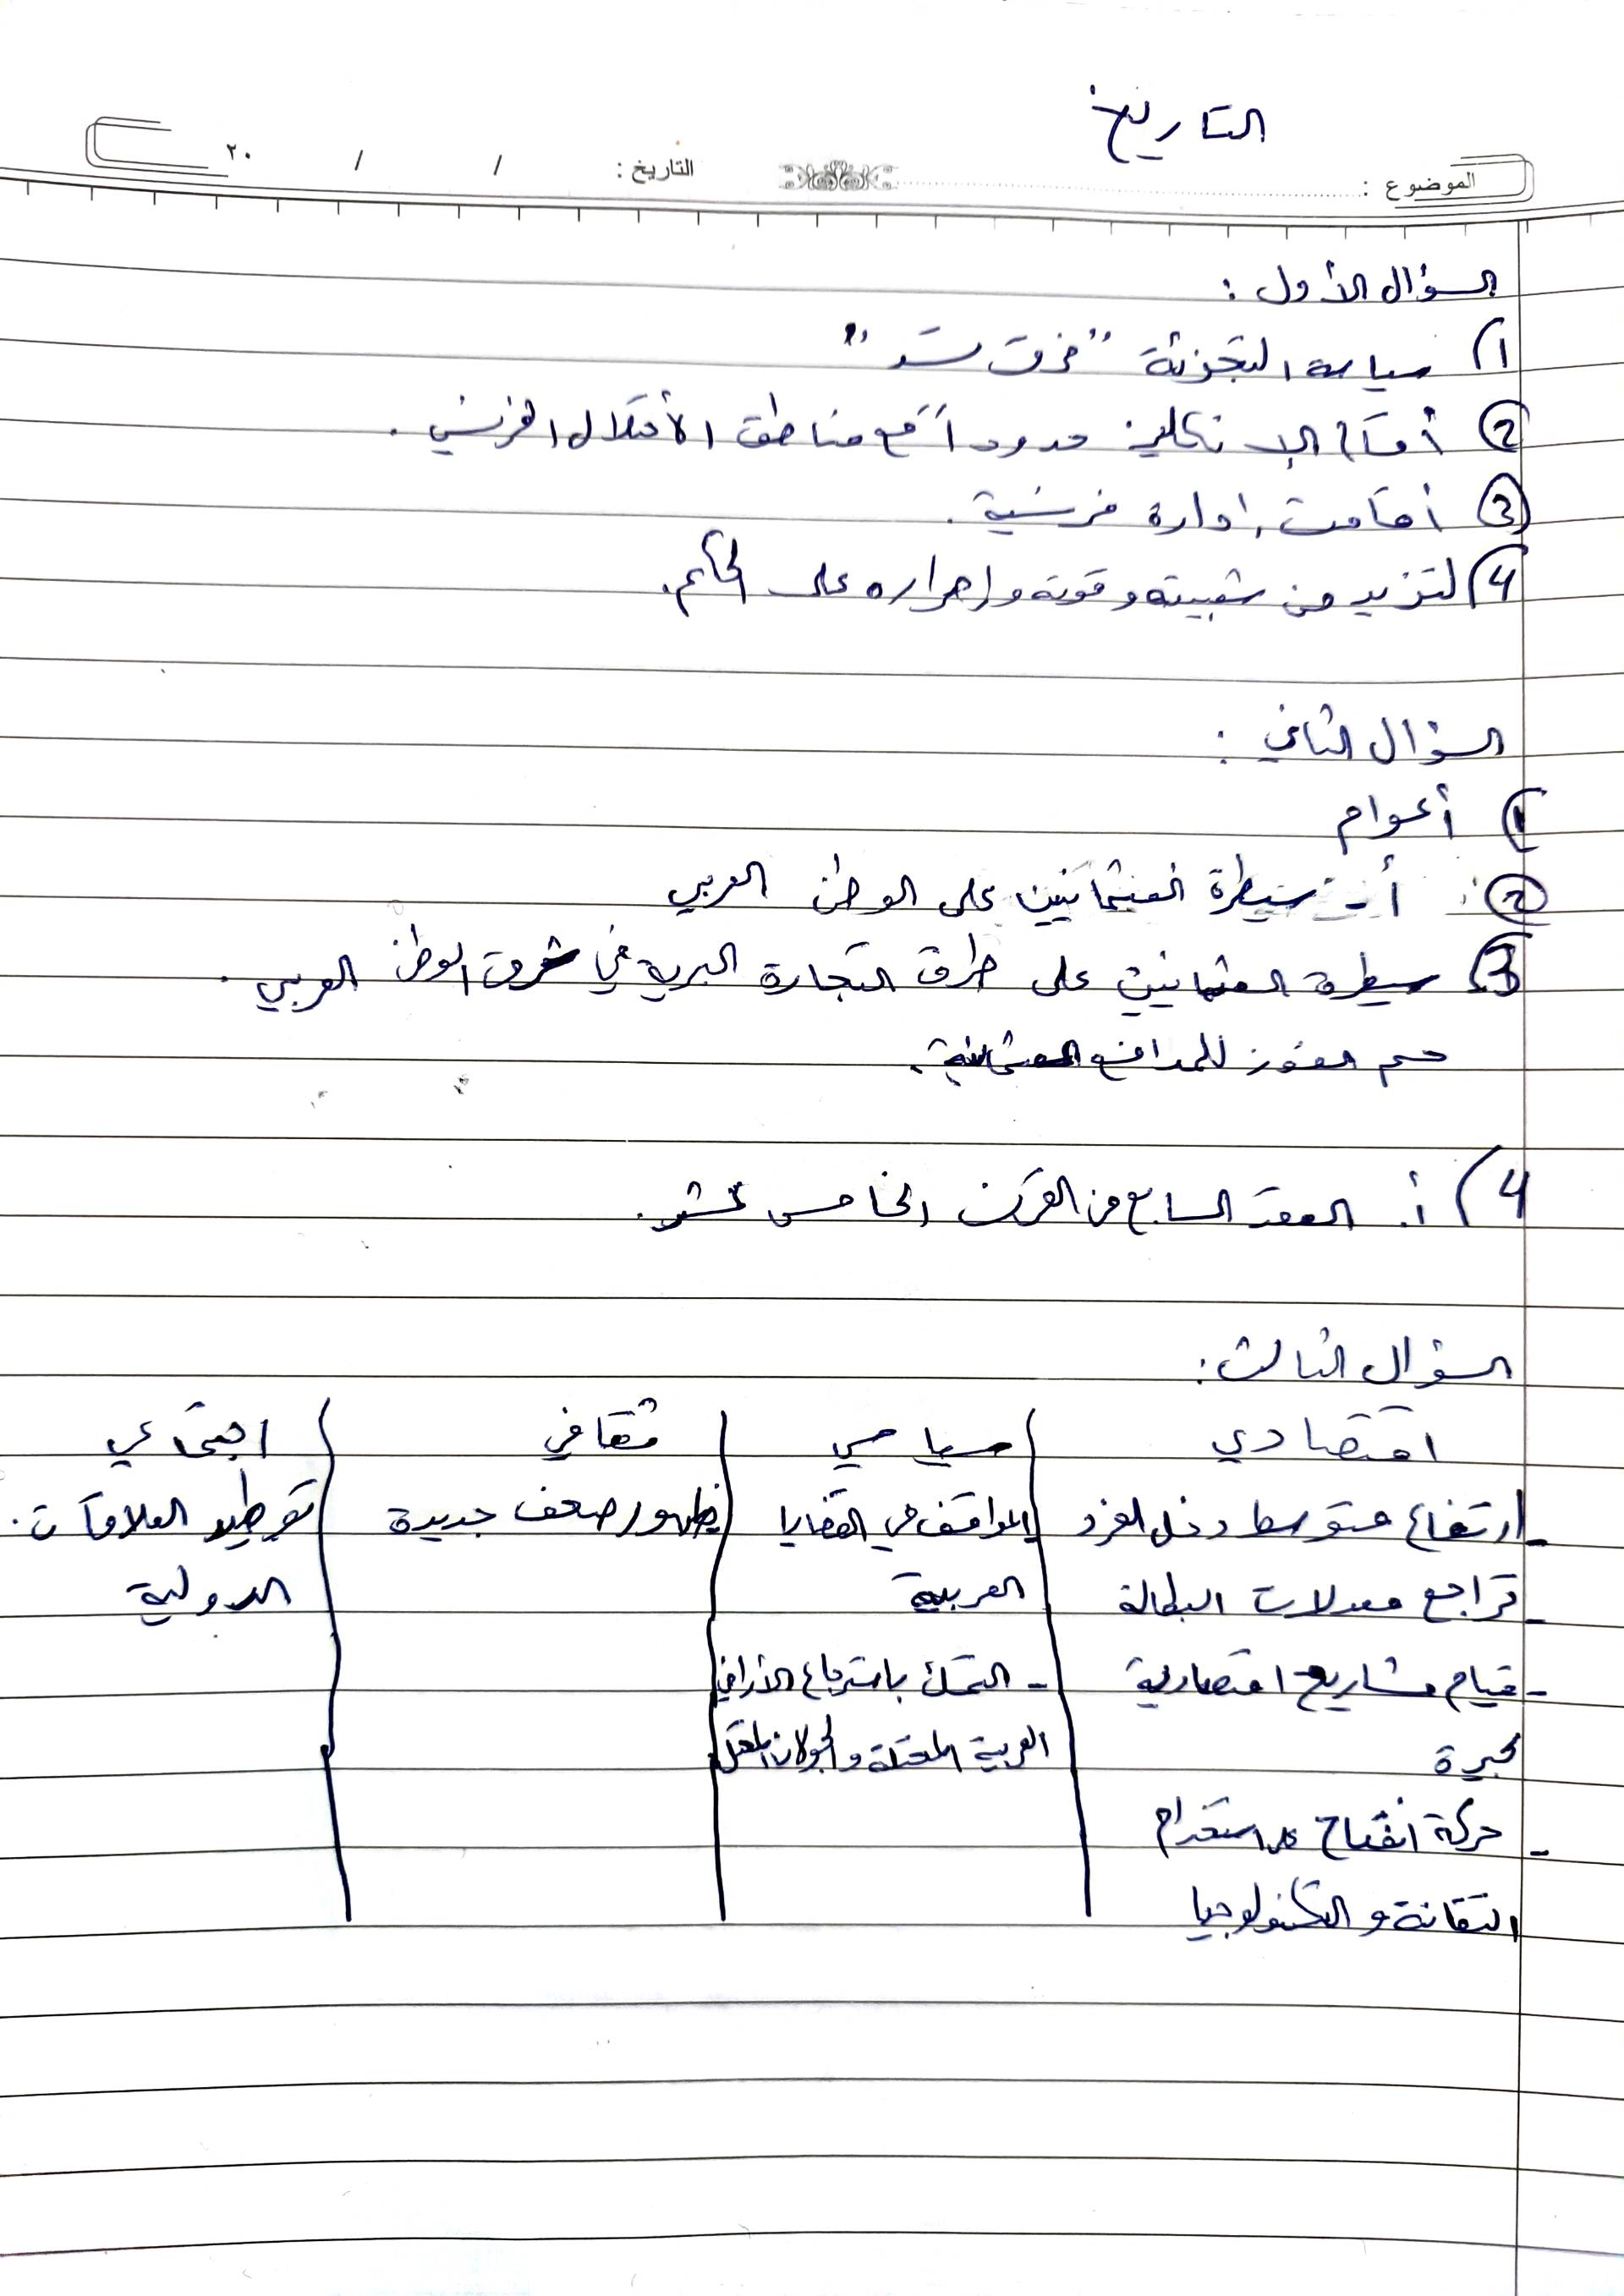 التاريخ
الموضوع : التاريخ : / / ٢٠
السؤال الأول :
1) سياسة التجزئة "فرق تسد"
2) أقام الإنكليز حدوداً مع مناطق الأحتلال الفرنسي .
3) أقامت إدارة فرنسية .
4) لتزيد من شعبيته وقوته وإصراره على الحكم.
السؤال الثاني :
1) أعوام
2) أ - سيطرة العثمانيين على الوطن العربي
3) سيطرة العثمانيين على طرق التجارة البرية في شرق الوطن العربي .
حسم الفوز للمدافع العثمانية .
4) أ. العقد السابع من القرن الخامس عشر .
السؤال الثالث :
اقتصادي سياسي ثقافي اجتماعي
- ارتفاع متوسط دخل الفرد المواقف في القضايا ظهور صحف جديدة توطيد العلاقات .
- تراجع معدلات البطالة العربية الدولية
- قيام مشاريع اقتصادية - التمسك باسترجاع الأراضي
كبيرة العربية المحتلة والجولان المحتل
- حركة انفتاح على استخدام
التقانة والتكنولوجيا